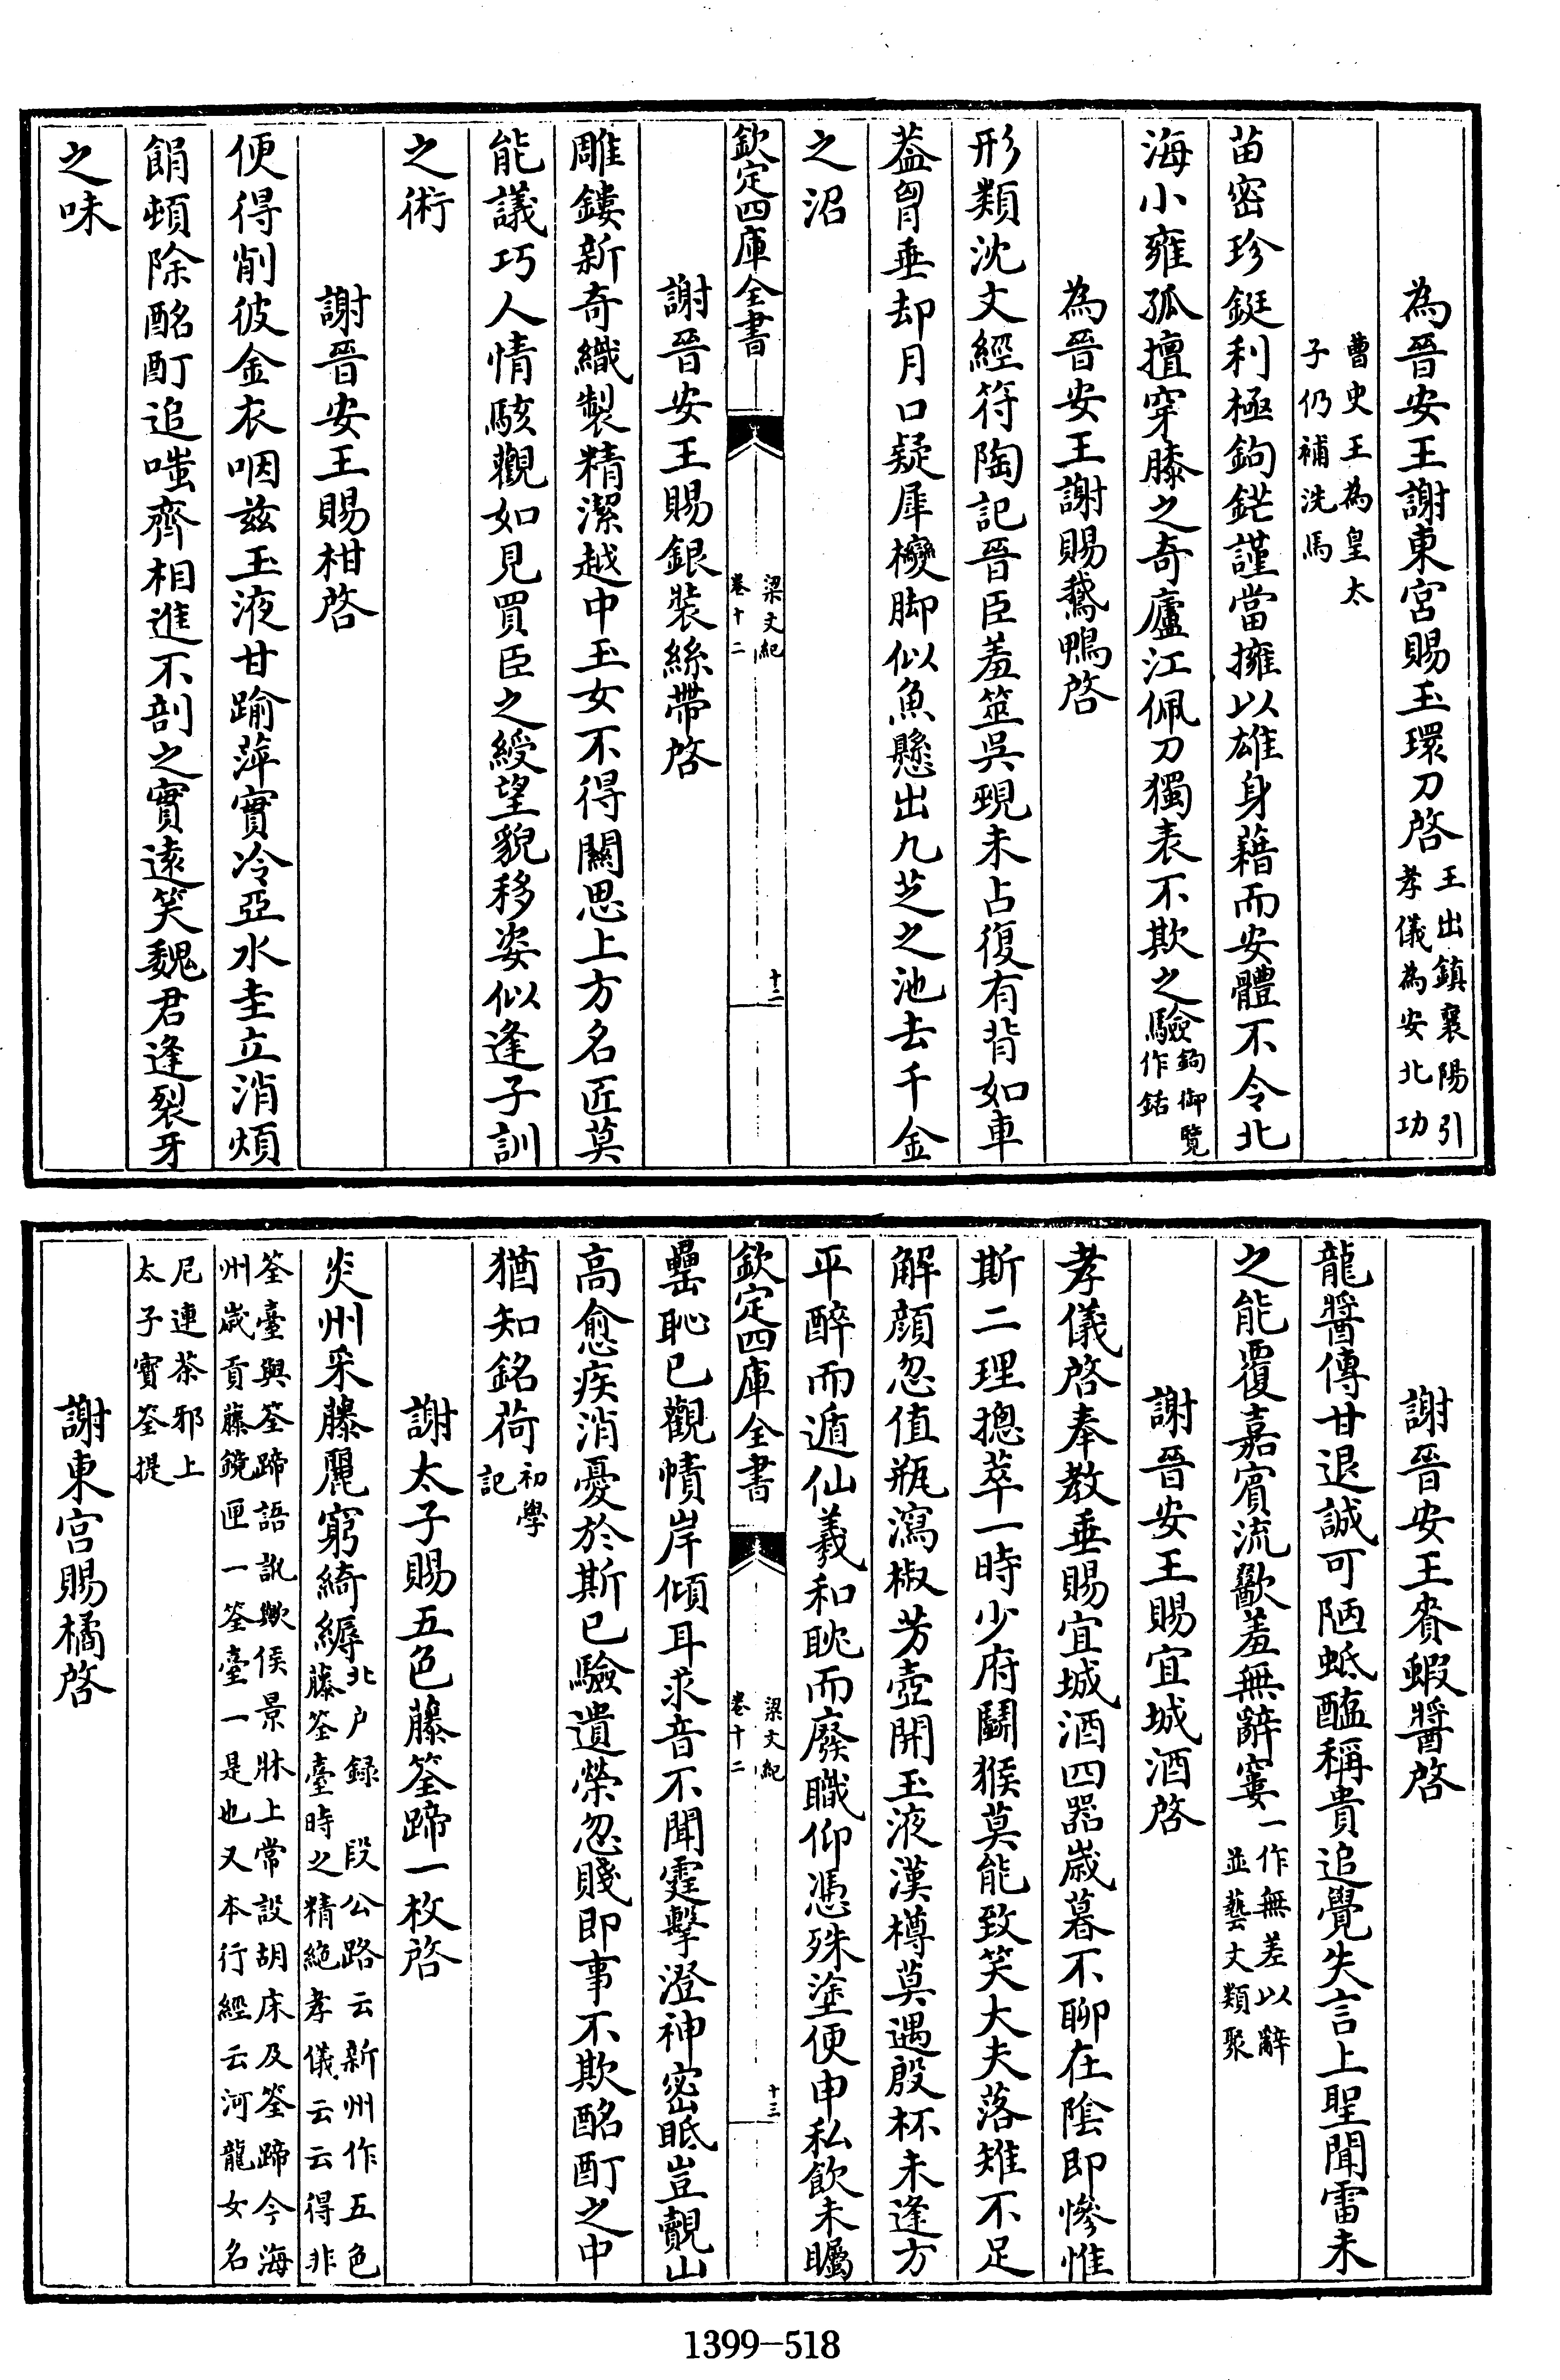 為晉安王謝東宮賜玉環刀啓王出鎮襄陽引孝儀為安北功
曹史王為皇太子仍補洗馬
苗密珍鋌利極鉤鋩謹當擁以雄身藉而安體不令北
海小雍孤擅穿膝之奇廬江佩刀獨表不欺之驗鉤御覽作銛
為晉安王謝賜鵝鴨啓
形類沈文經符陶記晉臣羞筮吳覡未占復有背如車
蓋胷垂却月口疑犀欒脚似魚懸出九芝之池去千金
之沼
欽定四庫全書
梁文紀
卷十二
十二
謝晉安王賜銀裝絲帶啓
雕鏤新奇織製精潔越中玉女不得關思上方名匠莫
能議巧人情駭觀如見買臣之綬望貌移姿似逢子訓
之術
謝晉安王賜柑啓
便得削彼金衣咽茲玉液甘踰萍實冷亞水圭立消煩
䬼頓除酩酊追嗤齊相進不剖之實遠笑魏君逢裂牙
之味
謝晉安王賚蝦醬啓
龍醬傳甘退誠可陋蚳醢稱貴追覺失言上聖聞雷未
之能覆嘉賓流歠羞無辭窶一作無差以辭並藝文類聚
謝晉安王賜宜城酒啓
孝儀啓奉教垂賜宜城酒四器歲暮不聊在陰即慘惟
斯二理摠萃一時少府鬭猴莫能致笑大夫落雉不足
解顏忽值瓶瀉椒芳壺開玉液漢樽莫遇殷杯未逢方
平醉而遁仙羲和耽而廢職仰憑殊塗便申私飲未矚
欽定四庫全書
梁文紀
卷十二
十三
罍恥已觀幘岸傾耳求音不聞霆擊澄神密眂豈覿山
高愈疾消憂於斯已驗遺榮忽賤即事不欺酩酊之中
猶知銘荷初學記
謝太子賜五色藤筌蹄一枚啓
炎州采藤麗窮綺縟北户録 段公路云新州作五色藤筌臺時之精絶孝儀云云得非
筌臺與筌蹄語訛歟侯景牀上常設胡床及筌蹄今海州歲貢藤鏡匣一筌臺一是也又本行經云河龍女名
尼連荼邪上太子寳筌提
謝東宫賜橘啓
1399-518